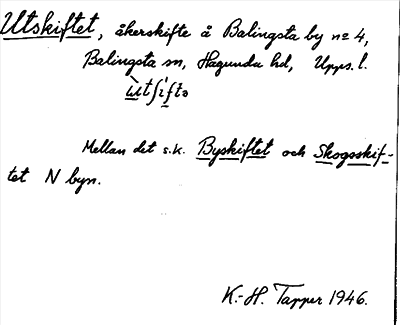 Utskiftet, åkerskifte å Balingsta by nº 4,
Balingsta sn, Hagunda hd, Upps. l.
ùtʃiftə
Mellan det s.k. Byskiftet och Skogsskif-
tet N byn.
K.-H. Tapper 1946.